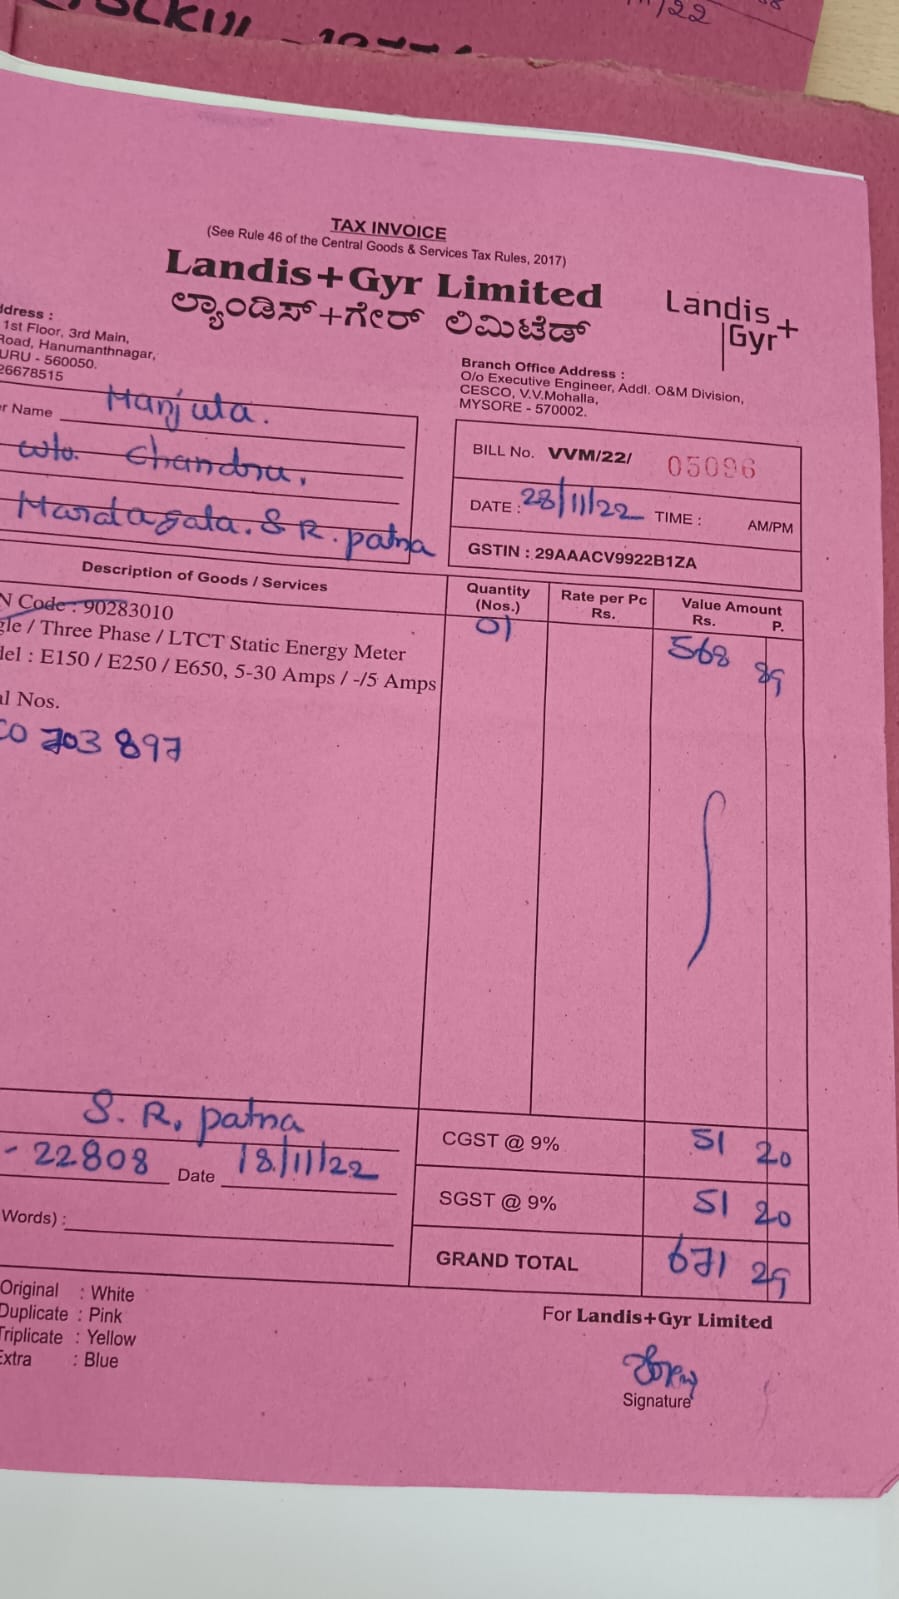 TAX INVOICE
(See Rule 46 of the Central Goods & Services Tax Rules, 2017)
Landis+Gyr Limited
ಲ್ಯಾಂಡಿಸ್+ಗೇರ್ ಲಿಮಿಟೆಡ್
Landis
Gyr+
ddress :
1st Floor, 3rd Main,
Road, Hanumanthnagar,
URU - 560050.
26678515
Branch Office Address :
O/o Executive Engineer, Addl. O&M Division,
CESCO, V.V.Mohalla,
MYSORE - 570002.
er Name Manjula.
w/o. Chandru,
Mardagala. S R. patna
BILL No. VVM/22/ 05096
DATE : 28/11/22 TIME : AM/PM
GSTIN : 29AAACV9922B1ZA
Description of Goods / Services
Quantity
(Nos.)
Rate per Pc
Rs.
Value Amount
Rs. P.
N Code : 90283010
gle / Three Phase / LTCT Static Energy Meter
del : E150 / E250 / E650, 5-30 Amps / -/5 Amps
01
568 89
al Nos.
CO 703 897
S. R. patna
- 22808 Date 18/11/22
Words) :
CGST @ 9% 51 20
SGST @ 9% 51 20
GRAND TOTAL 671 29
Original : White
Duplicate : Pink
Triplicate : Yellow
Extra : Blue
For Landis+Gyr Limited
Signature